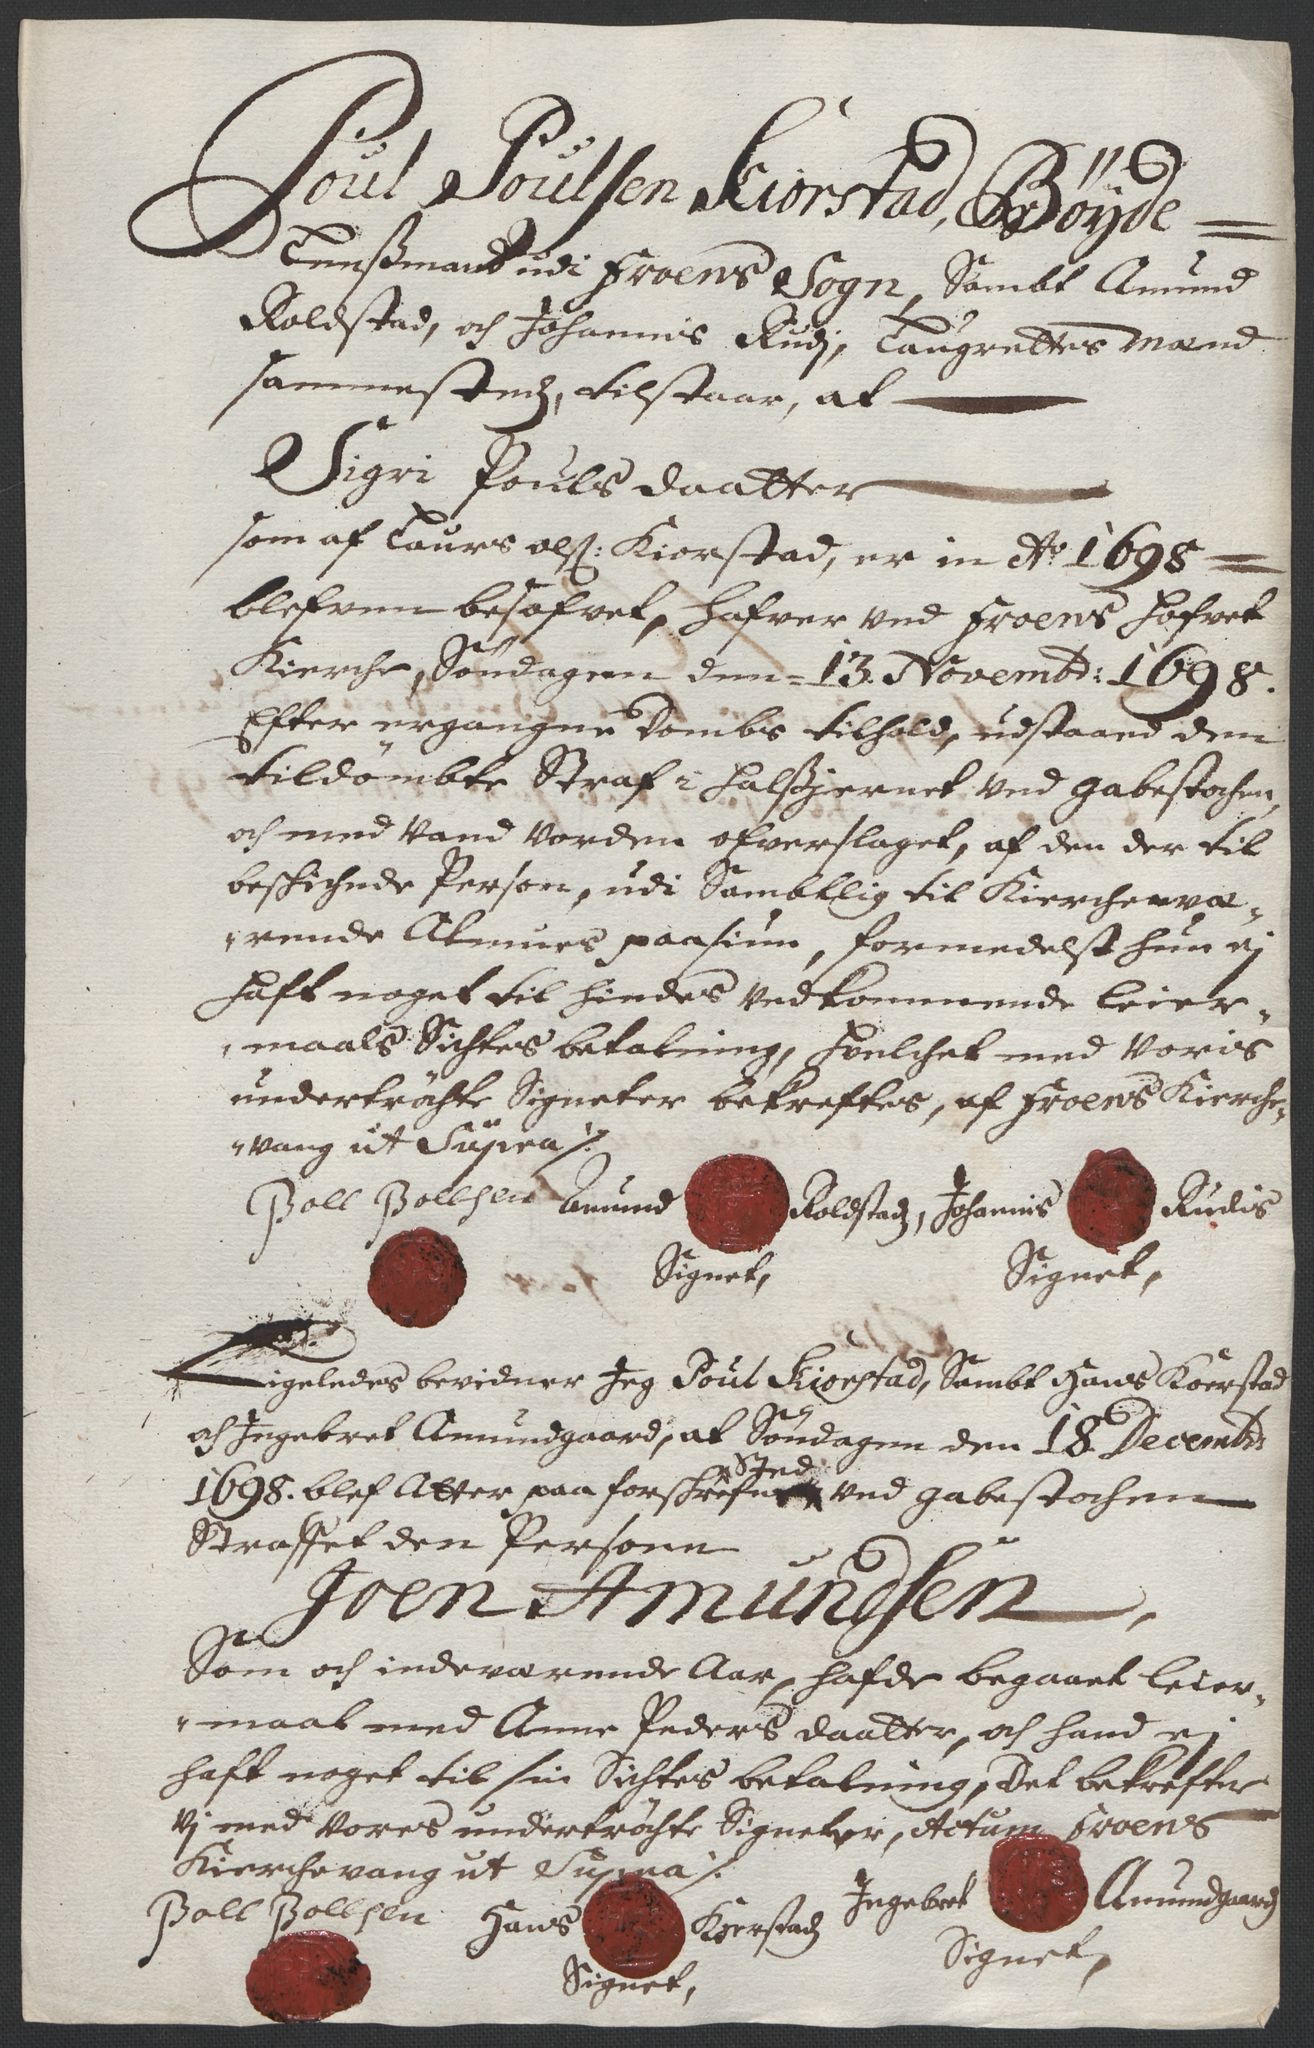 Poul Poulsen Kiorstad, Böyde
Lenßmand udi Froens Sogn, Sambt Amund
Roldstad, och Johannis Rudj, Laugrettes Mænd
sammestedz, tilstaar, at
Sigri Pouls daatter
som af Laurs ols: Kiorstad, er in Ao 1698
blefven besofvet, hafver ved Froens Hofvet
Kierche, Söndagen den 13. Novembr: 1698.
Efter ergangne Dombs tilhold, udstaaed den
tildömbte Straf i Halßjernet ved gabestochen,
och med Vand Vorden ofverslaget, af den der til
beschichede Person, udi Sambtlig til Kierche væ-
-rende Almues paasiun, formedelst hun ej
haft noget til hindes vedkommende leier-
-maals Sichtes betalning, Hvelchet med Voris
undertröchte Signeter bekreftes, af Froens Kierche-
-vang ut Supra /:
Poll Pollsen Amund Roldstadz, Johannis Rudis
Signet, Signet,
Ligeledes bevidner Jeg Poul Kiorstad, Sambt Hans Kiorstad
och Ingebret Amundgaard, at Söndagen den 18. Decembr:
1698. blef Atter paa forschrefne Sted ved gabestochen
Straffet den Persone
Joen Amundsen,
Som och indeværende Aar, hafde begaaet leier-
-maal med Anne Peders daatter, och hand ej
haft noget til sin Sichtes betalning, Det bekrefter
vj med vores undertröchte Signeter, Actum Froens
Kierchevang ut Supra /:
Poll Pollsen Hans Kiorstadz Ingebret Amundgaardz
Signet, Signet,